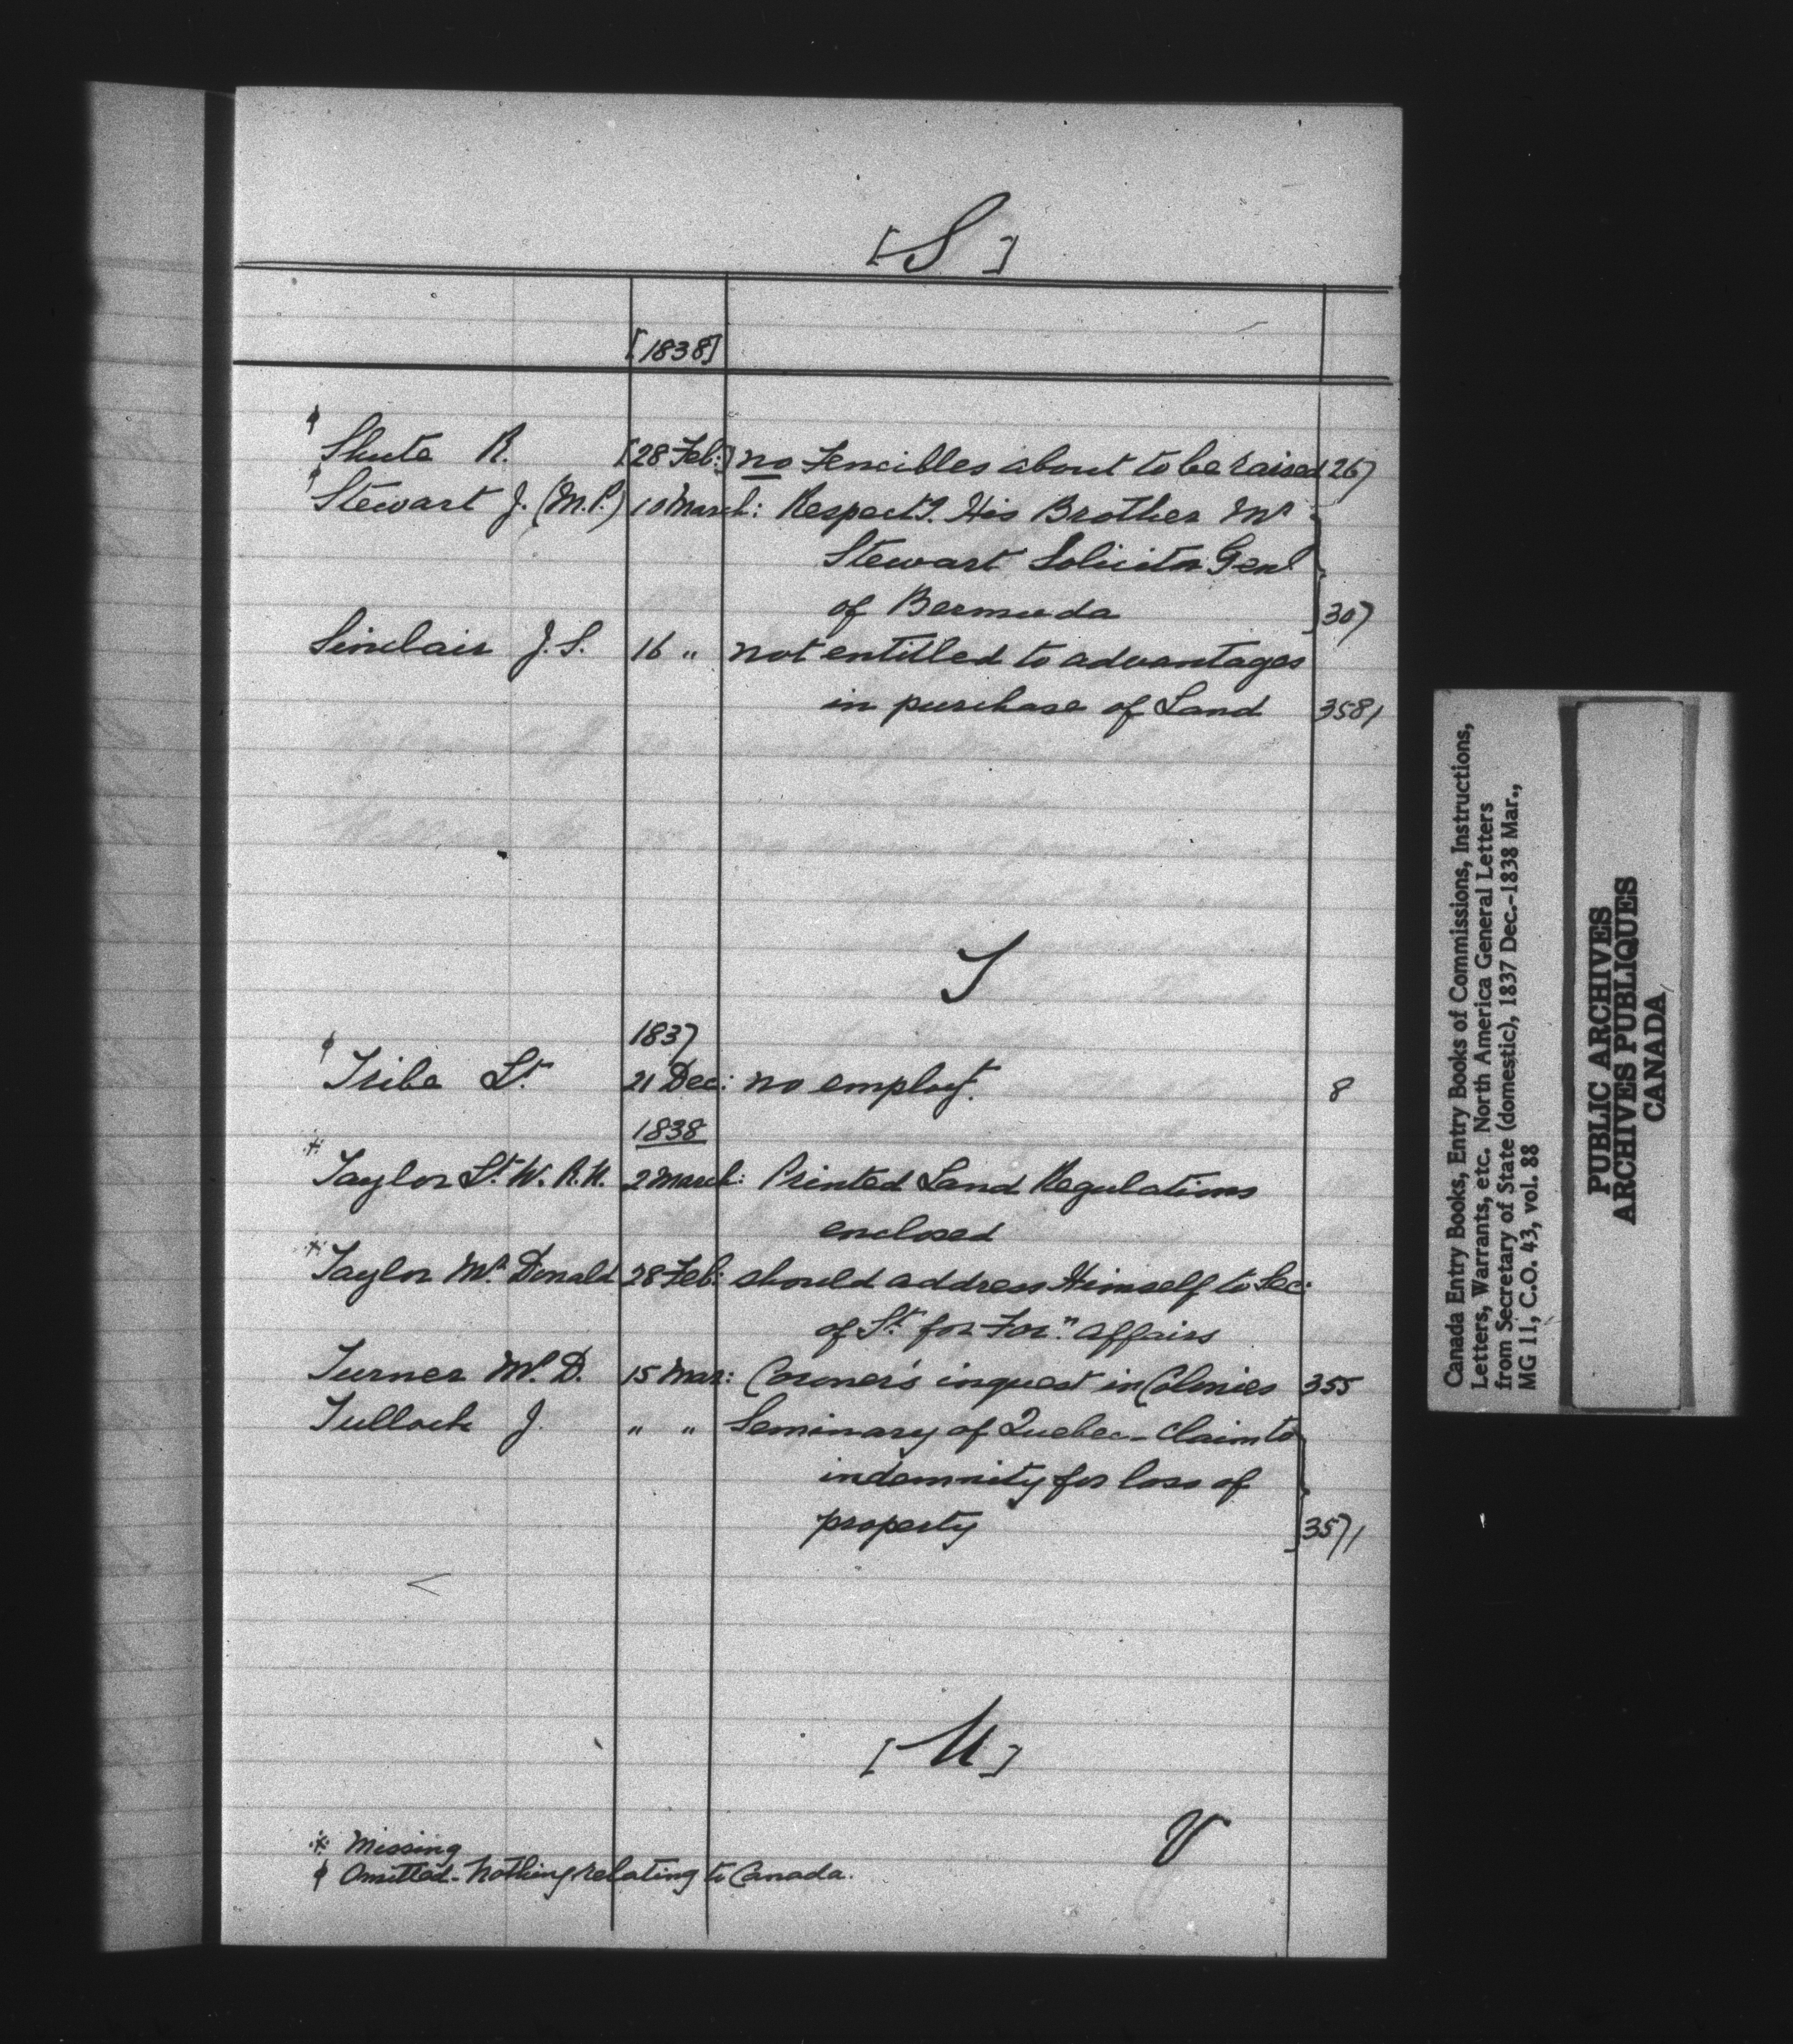 [S]
[1838]
φ Shute R. [28 Feb:] no Fencibles about to be raised 267
φ Stewart J. (M.P.) 10 March: Respectg. His Brother Mr
Stewart Solicitor Genl
of Bermuda 307
Sinclair J.S. 16 " not entitled to advantages
in purchase of Land 358/
T
1837
φ Tribe Lt. 21 Dec: no employt. 8
1838
※ Taylor Lt. W. R.N. 2 March: Printed Land Regulations
enclosed
※ Taylor Mr. Donald 28 Feb: should address Himself to Sec:
of St. for Forn. affairs
Turner Mr. D. 15 Mar: Coroner's inquest in Colonies 355
Tullock J. " " Seminary of Quebec - Claim to
indemnity for loss of
property 357/
[U]
V
※ Missing
φ Omitted - Nothing relating to Canada.
Canada Entry Books, Entry Books of Commissions, Instructions,
Letters, Warrants, etc. North America General Letters
from Secretary of State (domestic), 1837 Dec.-1838 Mar.,
MG 11, C.O. 43, vol. 88
PUBLIC ARCHIVES
ARCHIVES PUBLIQUES
CANADA